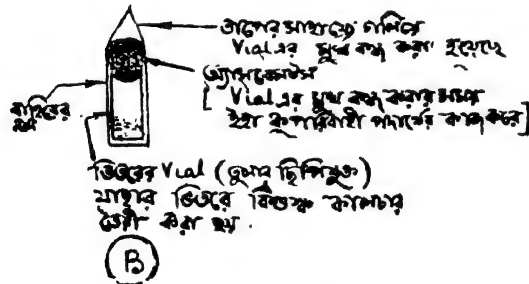 তাপের সাহায্যে গালিয়ে
Vial এর মুখ বন্ধ করা হয়েছে
অ্যাসবেস্টস
[ Vial এর মুখ বন্ধ করার সময়
ইহা কুপরিবাহী পদার্থের কাজ করে ]
বাহিরের
ভিতরের Vial (তুলার ছিপিযুক্ত)
যাহার ভিতরে বিশুষ্ক কালচার
তৈরী করা হয়
B